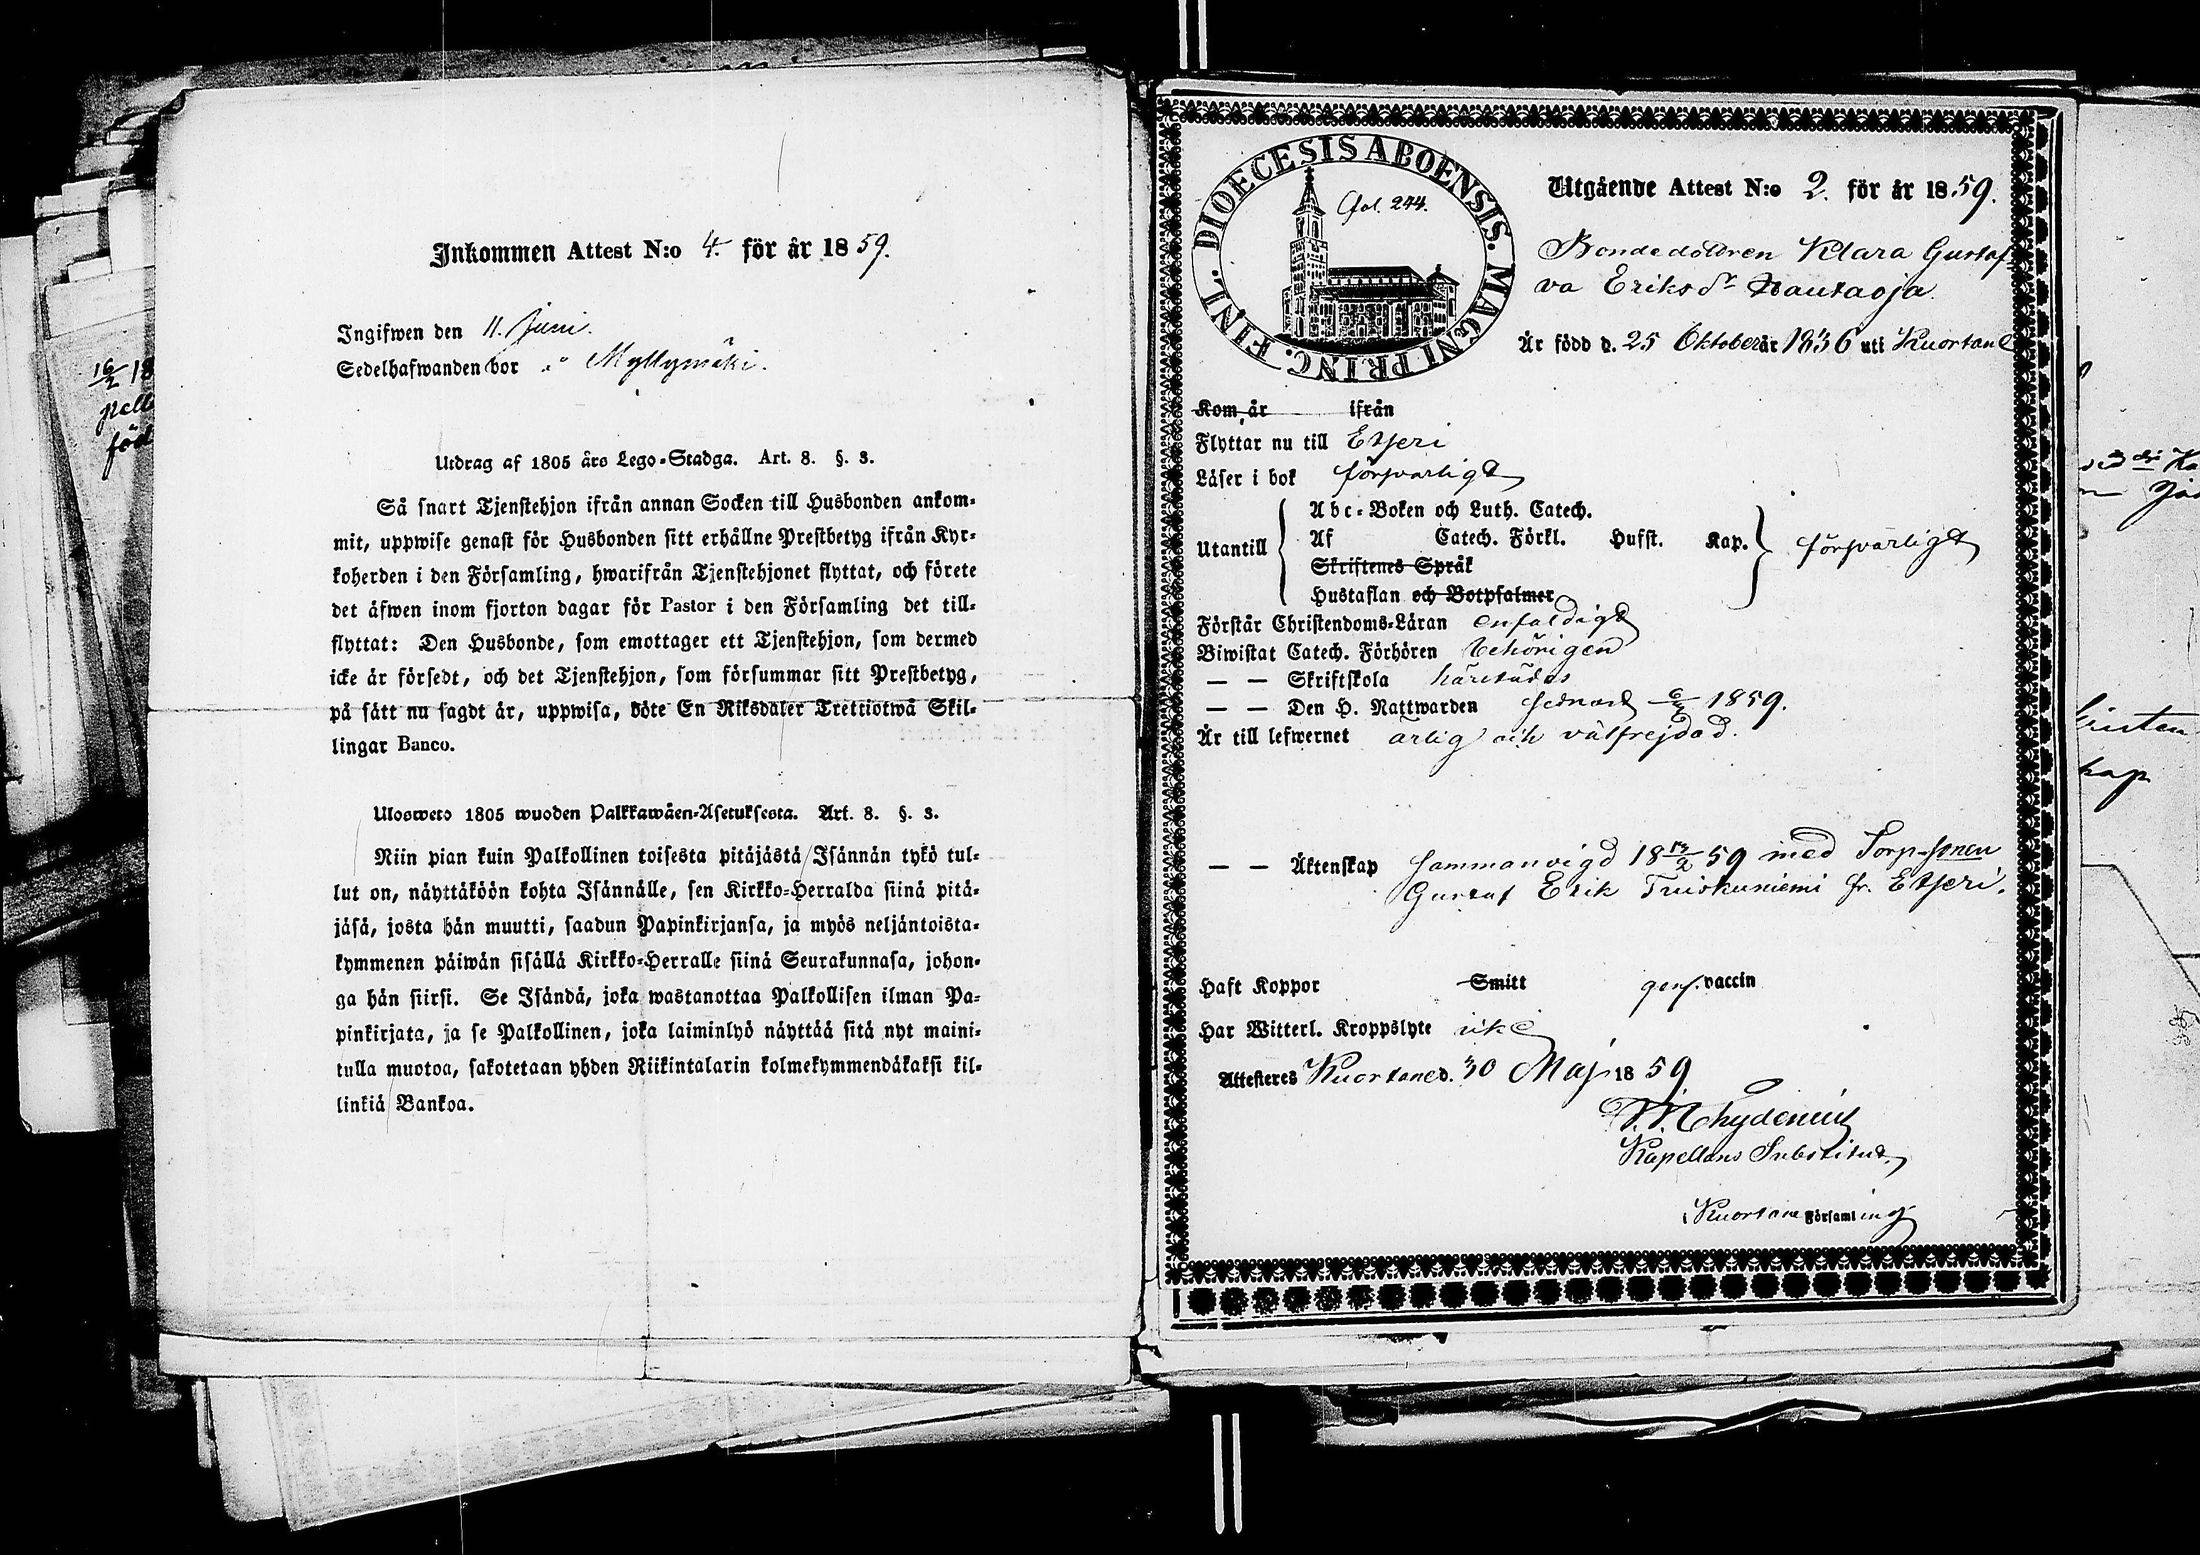 Inkommen Attest N:o 4. för år 1859.
Ingifwen den 11. Juni.
Sedelhafwanden bor " Myllymäki.
Utdrag af 1805 års Lego-Stadga. Art. 8. §. 3.
Så snart Tjenstehjon ifrån annan Socken till Husbonden ankom-
mit, uppwise genast för Husbonden sitt erhållne Prestbetyg ifrån Kyr-
koherden i den Församling, hwarifrån Tjenstehjonet flyttat, och förete
det äfwen inom fjorton dagar för Pastor i den Församling det till-
flyttat: Den Husbonde, som emottager ett Tjenstehjon, som dermed
icke är försedt, och det Tjenstehjon, som försummar sitt Prestbetyg,
på sätt nu sagdt är, uppwisa, böte En Riksdaler Trettiotwå Skil-
lingar Banco.
Ulosweto 1805 wuoden Palkkawäen-Asetuksesta. Art. 8. §. 3.
Niin pian kuin Palkollinen toisesta pitäjästä Isännän tykö tul-
lut on, näyttäköön kohta Isännälle, sen Kirkko-Herralda siinä pitä-
jäsä, josta hän muutti, saadun Papinkirjansa, ja myös neljäntoista-
kymmenen päiwän sisällä Kirkko-Herralle siinä Seurakunnasa, johon-
ga hän siirsi. Se Isändä, joka wastanottaa Palkollisen ilman Pa-
pinkirjata, ja se Palkollinen, joka laiminlyö näyttää sitä nyt maini-
tulla muotoa, sakotetaan yhden Riikintalarin kolmekymmendäkaksi kil-
linkiä Bankoa.
DIOECESIS ABOENSIS. MAGNI PRINC. FINL.
fol. 244.
Utgående Attest N:o 2. för år 1859.
Bondedottren Klara Gustaf-
va Eriksdr Rautaoja.
Är född d. 25 Oktober år 1836 uti Kuortane
Kom år ifrån
Flyttar nu till Etseri
Läser i bok försvarligt
Utantill
Abc-Boken och Luth. Catech.
Af Catech. Förkl. Hufst. Kap. försvarligt
Skriftenes Språk
Hustaflan och Botpsalmer
Förstår Christendoms-Läran enfaldigt
Biwistat Catech. Förhören behörigen
— — Skriftskola härstädes
— — Den H. Nattwarden sednast 1859.
Är till lefwernet ärlig och välfrejdad.
— — Äktenskap sammanvigd 18 59 med Torp-sonen
Gustaf Erik Tuiskuniemi fr. Etseri.
Haft Koppor Smitt gens. vaccin
Har Witterl. Kroppslyte icke
Attesteres Kuortane d. 30 Maj 1859
Chydenius
Kapellans Substitut.
i Kuortane Församling